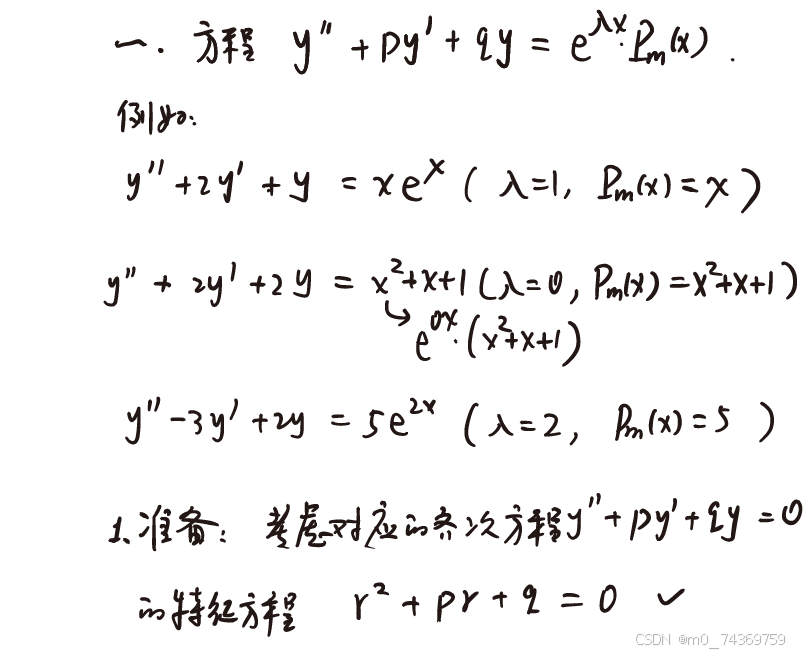 一. 方程 y'' + py' + qy = e^{λx}·P_m(x).
例如:
y'' + 2y' + y = xe^x ( λ=1, P_m(x) = x )
y'' + 2y' + 2y = x²+x+1 (λ=0, P_m(x) = x²+x+1)
↳ e^{0x}·(x²+x+1)
y'' - 3y' + 2y = 5e^{2x} ( λ=2, P_m(x) = 5 )
1. 准备: 考虑对应的齐次方程 y'' + py' + qy = 0
的特征方程 r² + pr + q = 0 ✓
CSDN @m0_74369759